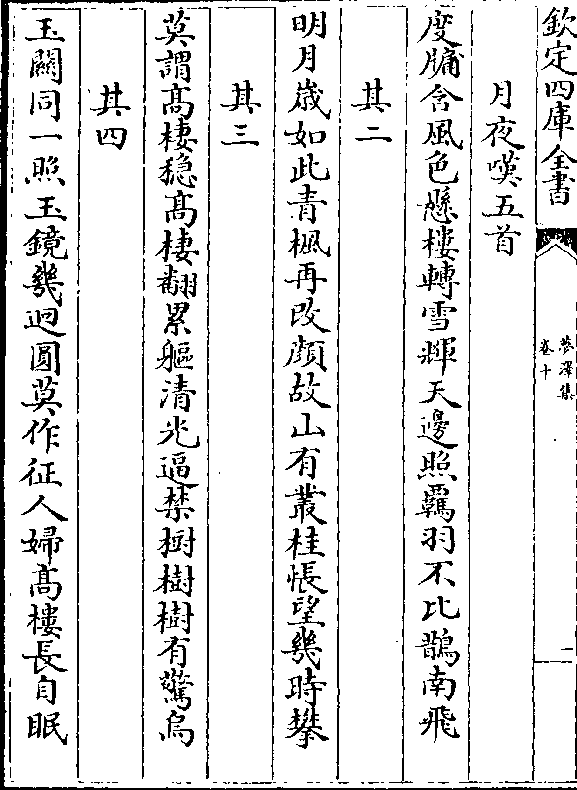 欽定四庫全書
夢澤集
卷十
一
月夜嘆五首
度牖含風色懸樓轉雪輝天邊照羈羽不比鵲南飛
其二
明月歳如此青楓再改顔故山有叢桂悵望幾時攀
其三
莫謂髙棲穏髙棲翻累軀清光逼禁樹樹樹有驚烏
其四
玉闗同一照玉鏡幾迴圓莫作征人婦髙樓長自眠